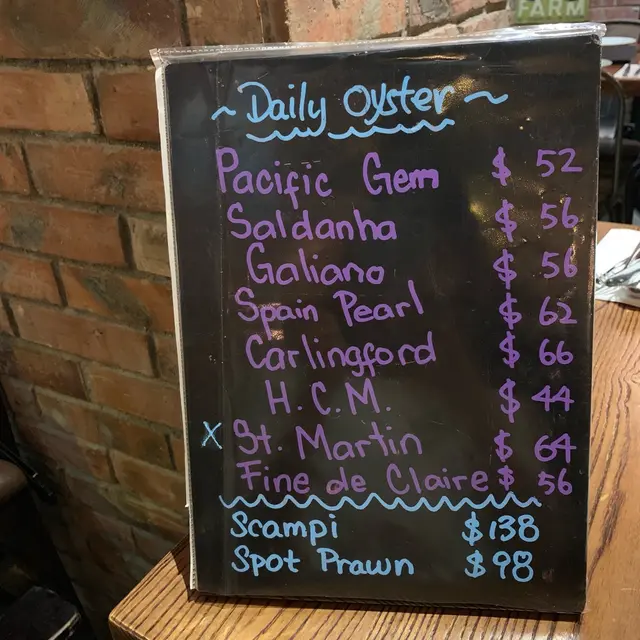 FARM
~ Daily Oyster ~
Pacific Gem $ 52
Saldanha $ 56
Galiano $ 56
Spain Pearl $ 62
Carlingford $ 66
H.C.M. $ 44
X St. Martin $ 64
Fine de Claire $ 56
Scampi $138
Spot Prawn $98